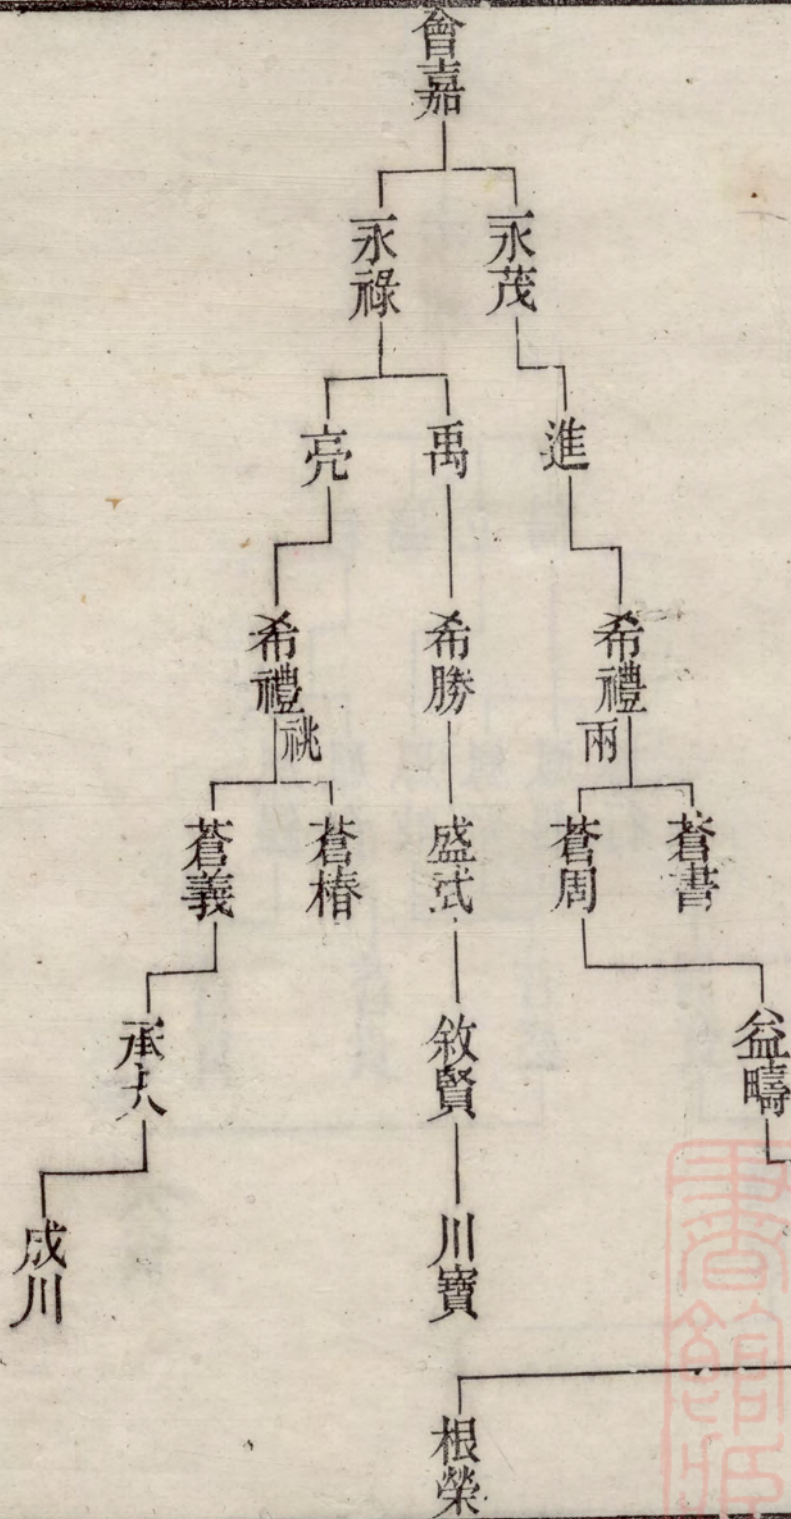 會嘉
永茂
永祿
進
禹
亮
希禮
兩
希勝
希禮
祧
蒼書
蒼周
盛武
蒼椿
蒼義
益疇
敘賢
承大
川寶
成川
根榮